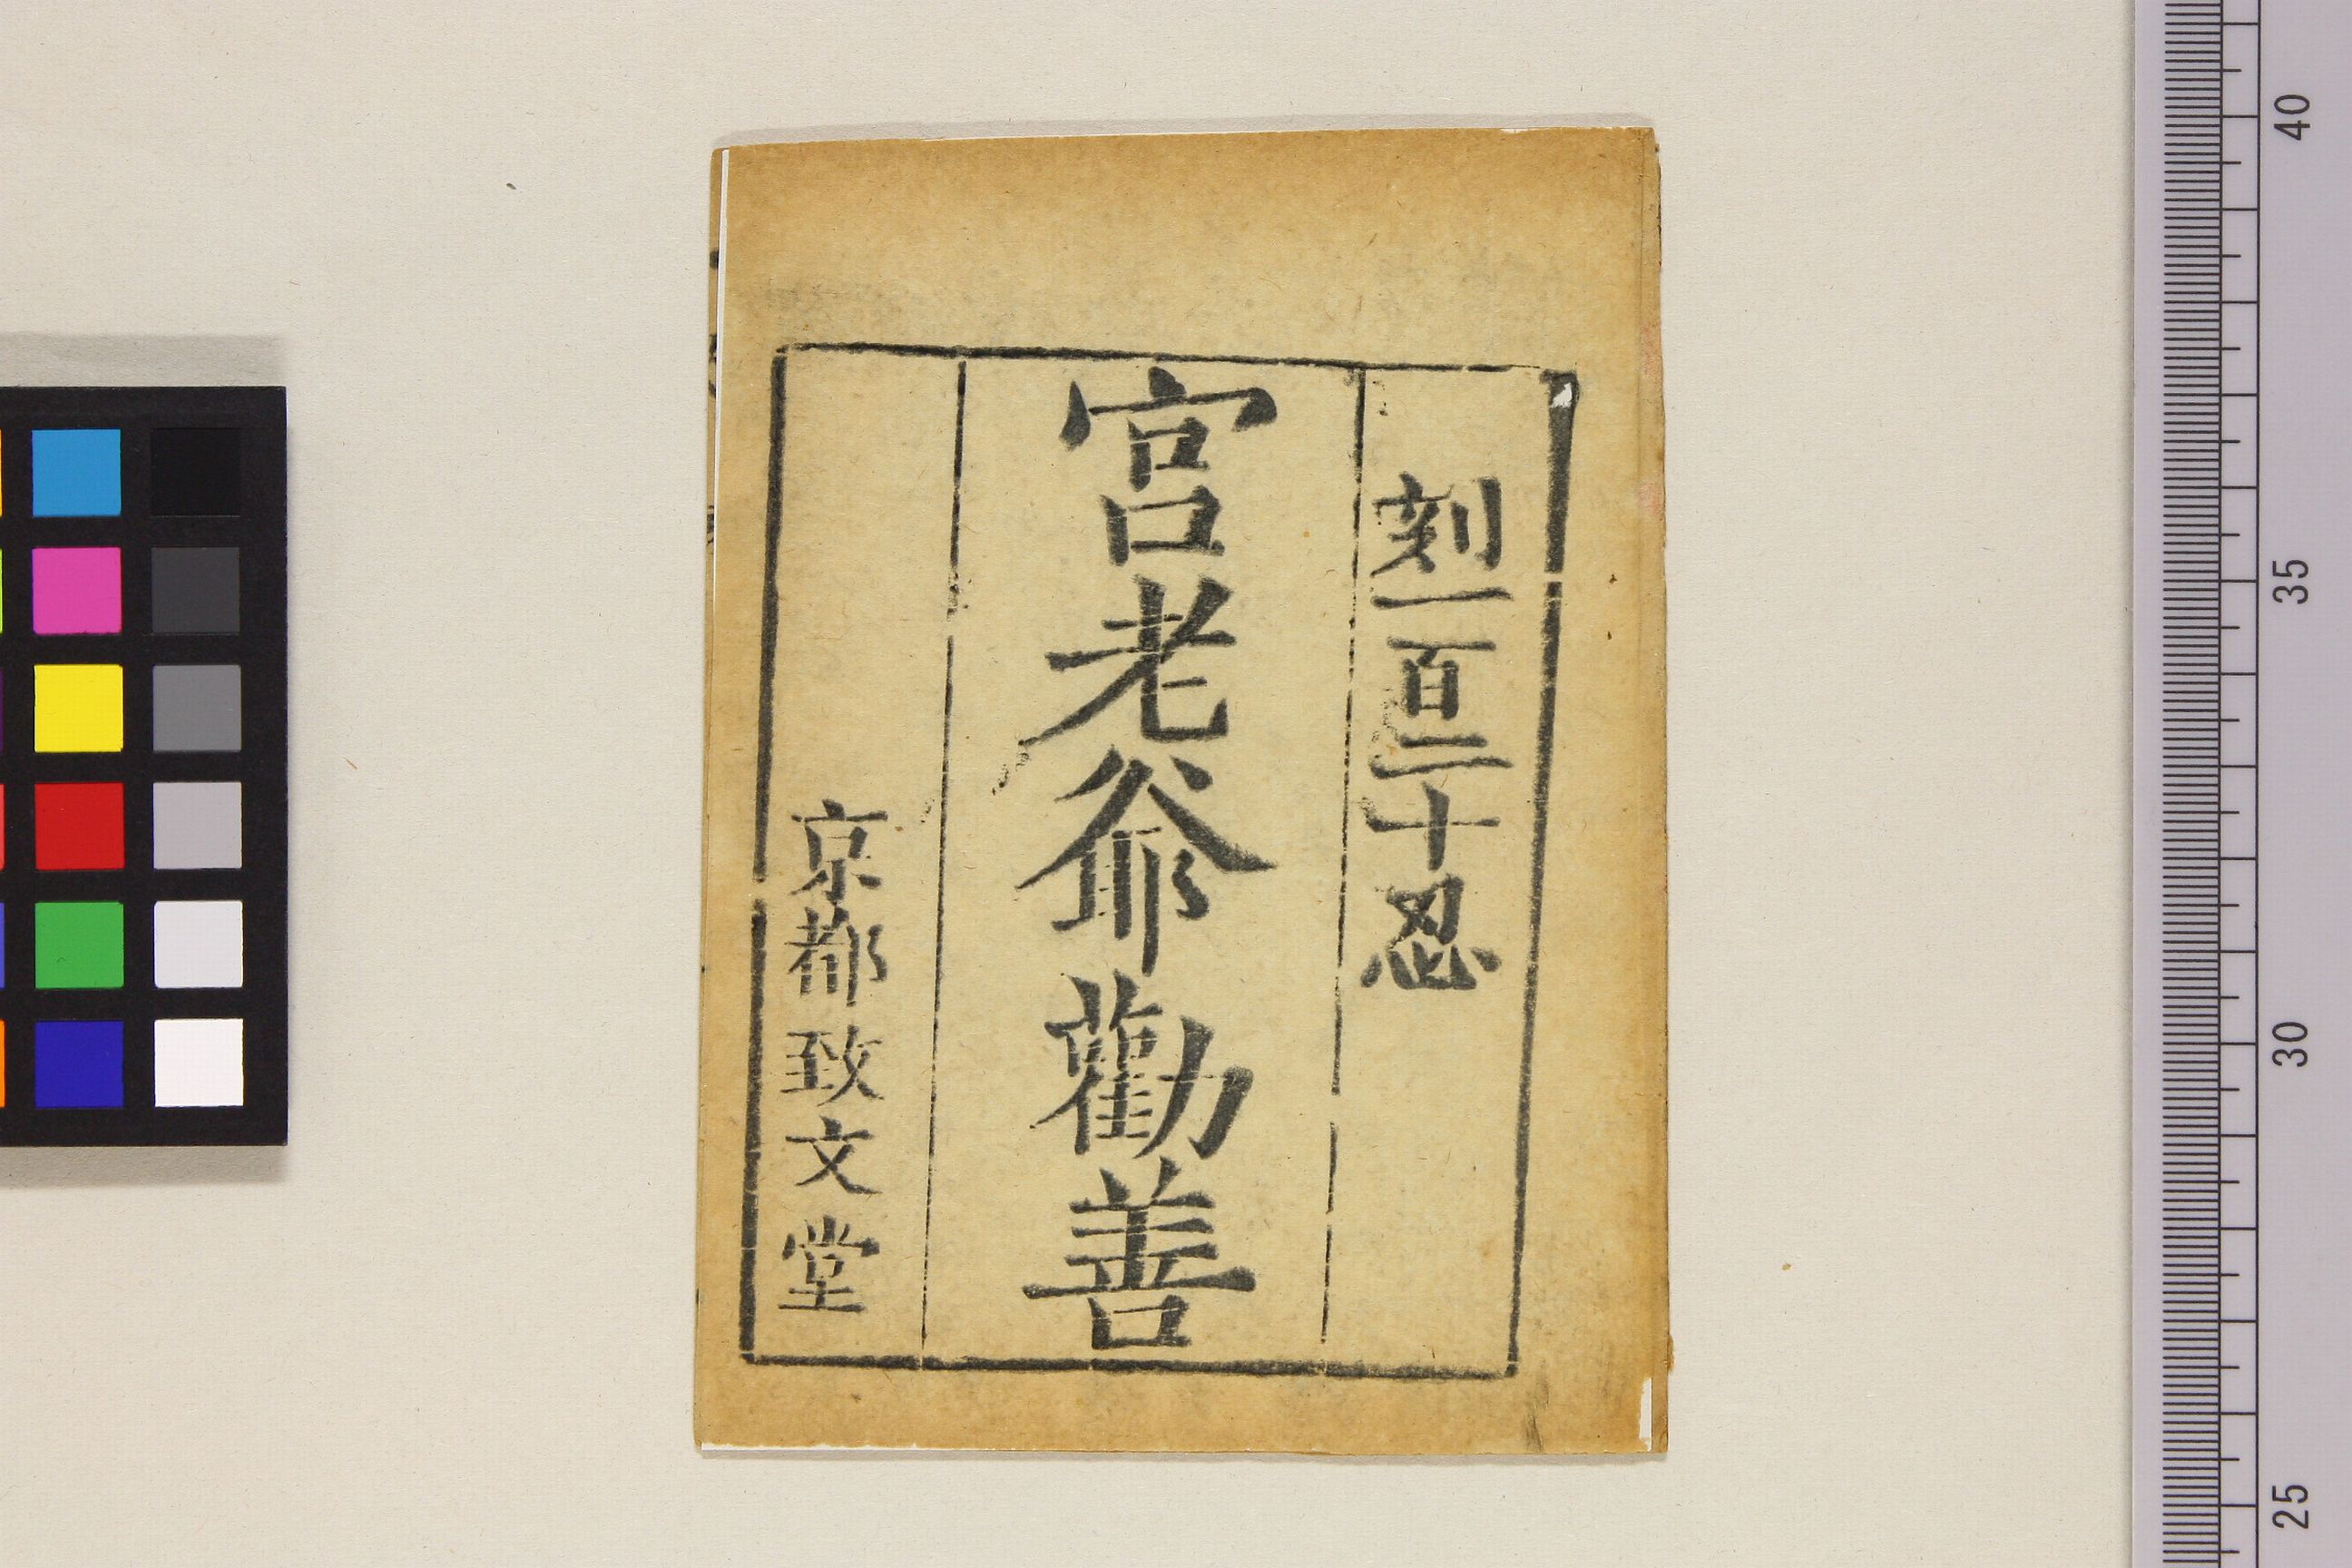 刻一百二十忍
宮老爺勸善
京都致文堂
40
35
30
25